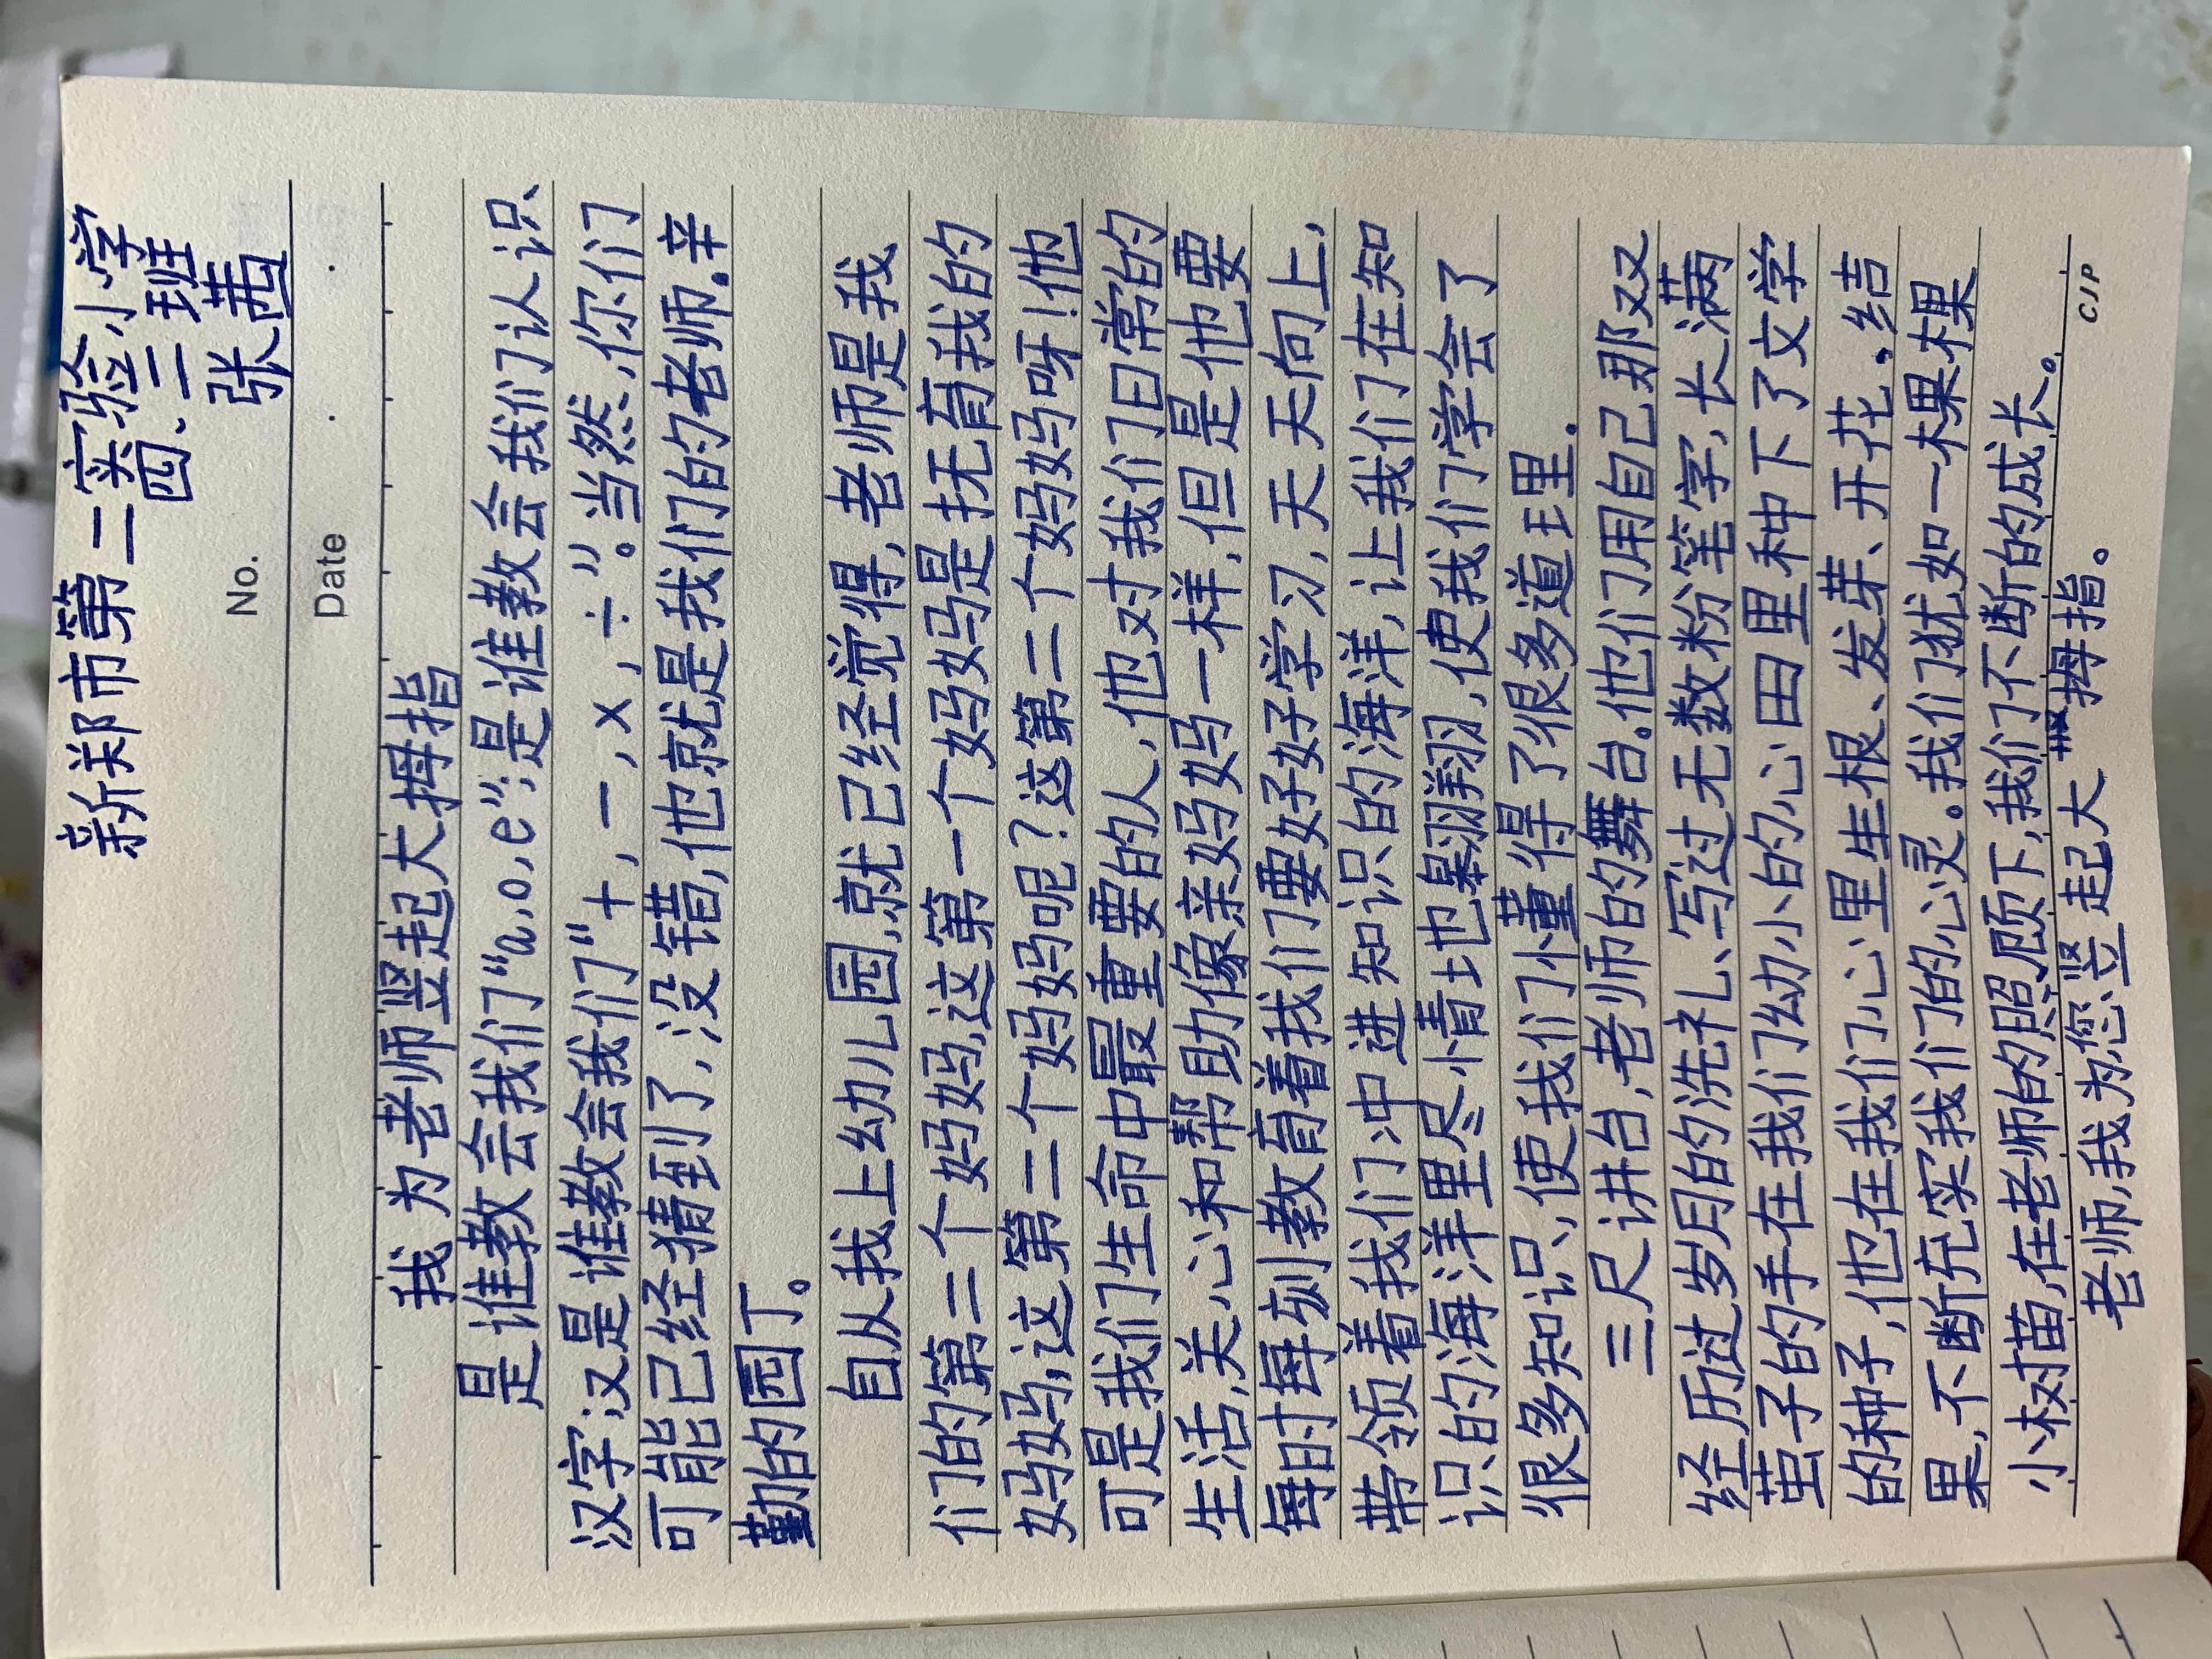 新郑市第二实验小学
四、二班
张茜
No.
Date
我为老师竖起大拇指
是谁教会我们“a,o,e”;是谁教会我们认识
汉字;汉是谁教会我们“+,-,×,÷”。当然,你们
可能已经猜到了,没错,他就是我们的老师。辛
勤的园丁。
自从我上幼儿园,就已经觉得,老师是我
们的第二个妈妈,这第一个妈妈是抚育我的
妈妈,这第二个妈妈呢?这第二个妈妈呀!他
可是我们生命中最重要的人,他对我们日常的
生活,关心和帮助像亲妈妈一样,但是他要
每时每刻教育着我们要好好学习,天天向上,
带领着我们冲进知识的海洋,让我们在知
识的海洋里尽情地翱翔,使我们学会了
很多知识,使我们懂得了很多道理.
三尺讲台,老师的舞台。他们用自己那双
经历过岁月的洗礼、写过无数粉笔字,长满
茧子的手在我们幼小的心田里种下了文学
的种子,他在我们心里生根、发芽、开花.结
果,不断充实我们的心灵。我们犹如一棵棵
小树苗,在老师的照顾下,我们不断的成长。
老师,我为您竖起大拇指。
CJP